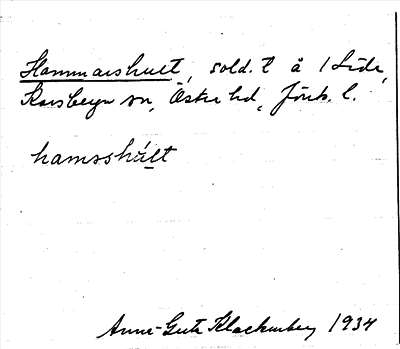 Hammarshult, sold.t å Lida,
Korsberga sn, Östra hd, Jönk. l.
hamsshált
Anna-Greta Klackenberg 1934